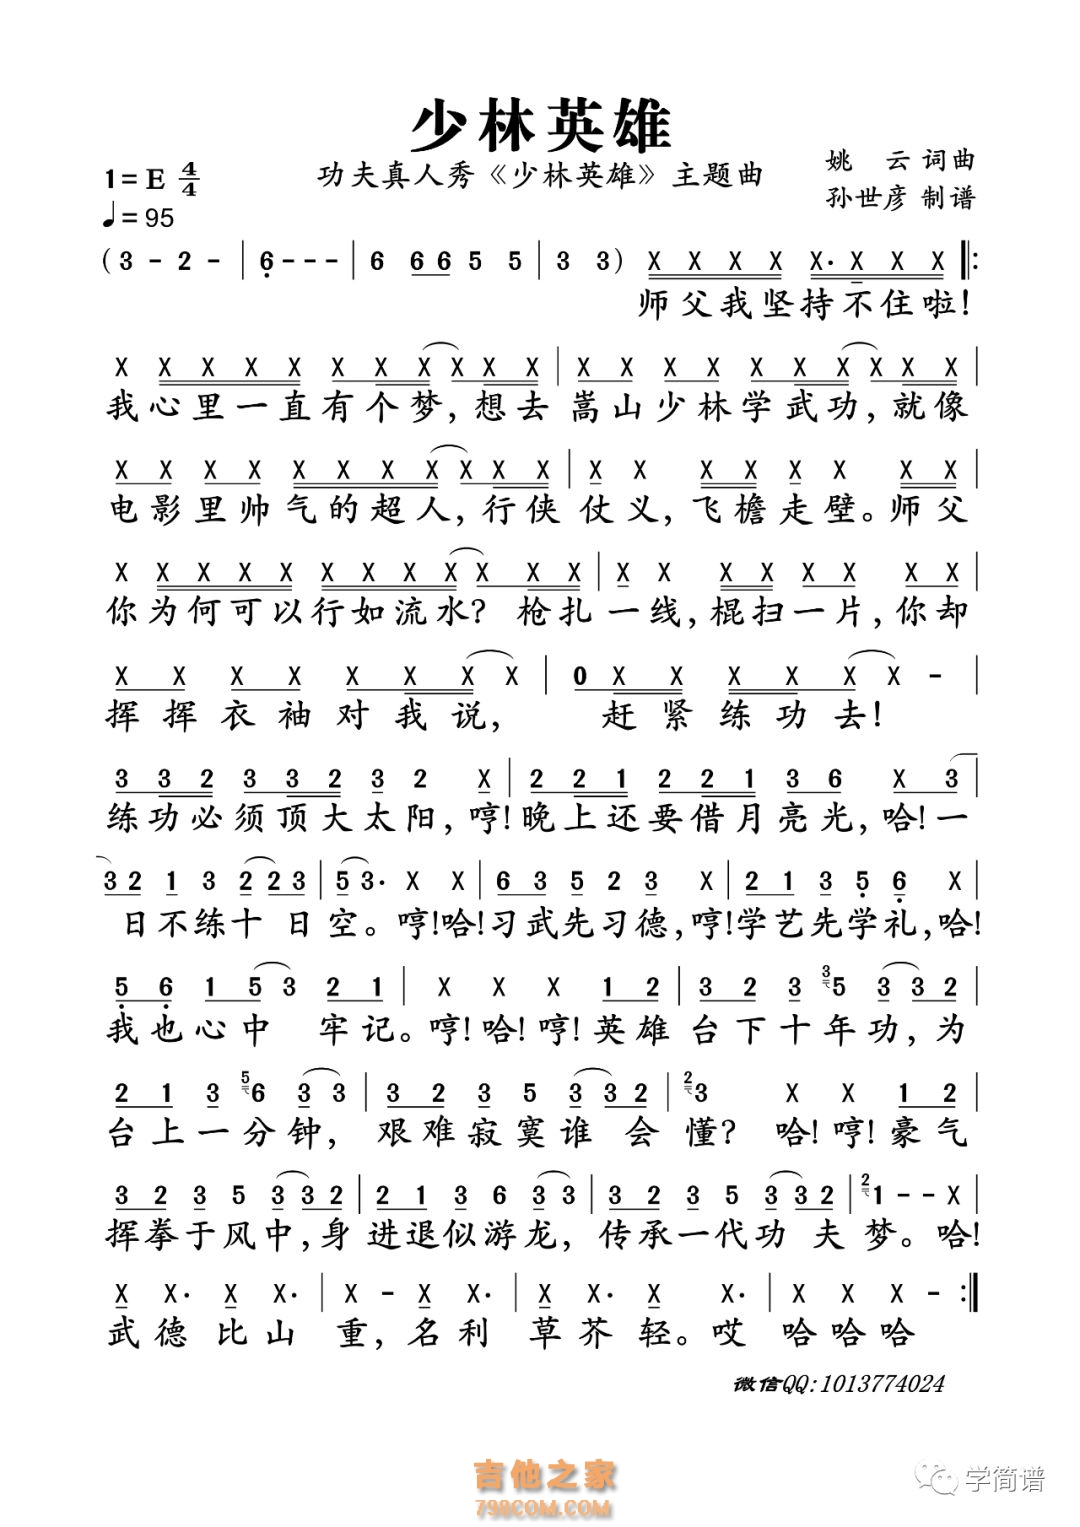 少林英雄
功夫真人秀《少林英雄》主题曲
姚 云 词曲
孙世彦 制谱
1=E 4/4
♩=95
(3 - 2 - | 6 - - - | 6 66 5 5 | 3 3) X X X X X. X X X ‖:
师父我坚持不住啦!
X X X X X X X X X X | X X X X X X X X X X |
我心里一直有个梦,想去嵩山少林学武功,就像
X X X X X X X X X X X | X X X X X X X X |
电影里帅气的超人,行侠仗义,飞檐走壁。师父
X X X X X X X X X X X X | X X X X X X X X |
你为何可以行如流水?枪扎一线,棍扫一片,你却
X X X X X X X X | 0 X X X X X X - |
挥挥衣袖对我说, 赶紧练功去!
3 3 2 3 3 2 3 2 X | 2 2 1 2 2 1 3 6 X 3 |
练功必须顶大太阳,哼!晚上还要借月亮光,哈!一
3 2 1 3 2 2 3 | 5 3. X X | 6 3 5 2 3 X | 2 1 3 5 6 X |
日不练十日空。哼!哈!习武先习德,哼!学艺先学礼,哈!
5 6 1 5 3 2 1 | X X X 1 2 | 3 2 3 3 5 3 3 2 |
我也心中 牢记。哼!哈!哼!英雄台下十年功,为
2 1 3 5 6 3 3 | 3 2 3 5 3 3 2 | 2 3 X X 1 2 |
台上一分钟, 艰难寂寞谁 会懂? 哈!哼!豪气
3 2 3 5 3 3 2 | 2 1 3 6 3 3 | 3 2 3 5 3 3 2 | 2 1 - - X |
挥拳于风中,身进退似游龙, 传承一代功 夫梦。哈!
X X. X X. | X - X X. | X X. X X. | X X X - :‖
武德比山重,名利草芥轻。哎 哈哈哈
微信QQ:1013774024
吉他之家
798COM.COM
学简谱